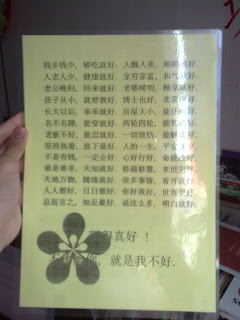 钱多钱少，够吃就好． 人醜人美，顺眼就好．
人老人少，健康就好． 家穷家富，和气就好．
老公晚归，回来就好． 老婆唠叨，顾家就好．
孩子从小，就要教好． 博士也好，卖菜也好．
长大以后，乖乖就好． 房屋大小，能住就好．
名不名牌，能穿就好． 两轮四轮，能驾就好．
老板不好，能忍就好． 一切烦恼，能解就好．
坚持执着，放下最好． 人的一生，平安就好．
不是有钱，一定会好． 心好行好，命能改好．
谁是谁非，天知就好． 修福修慧，来世更好．
天地万物，随缘就好． 很多事情，看开就好．
人人都好，日日都好． 你好我好，世界更好．
总而言之，知足最好． 说这么多，明白就好．
真好！
你，就是我不好．